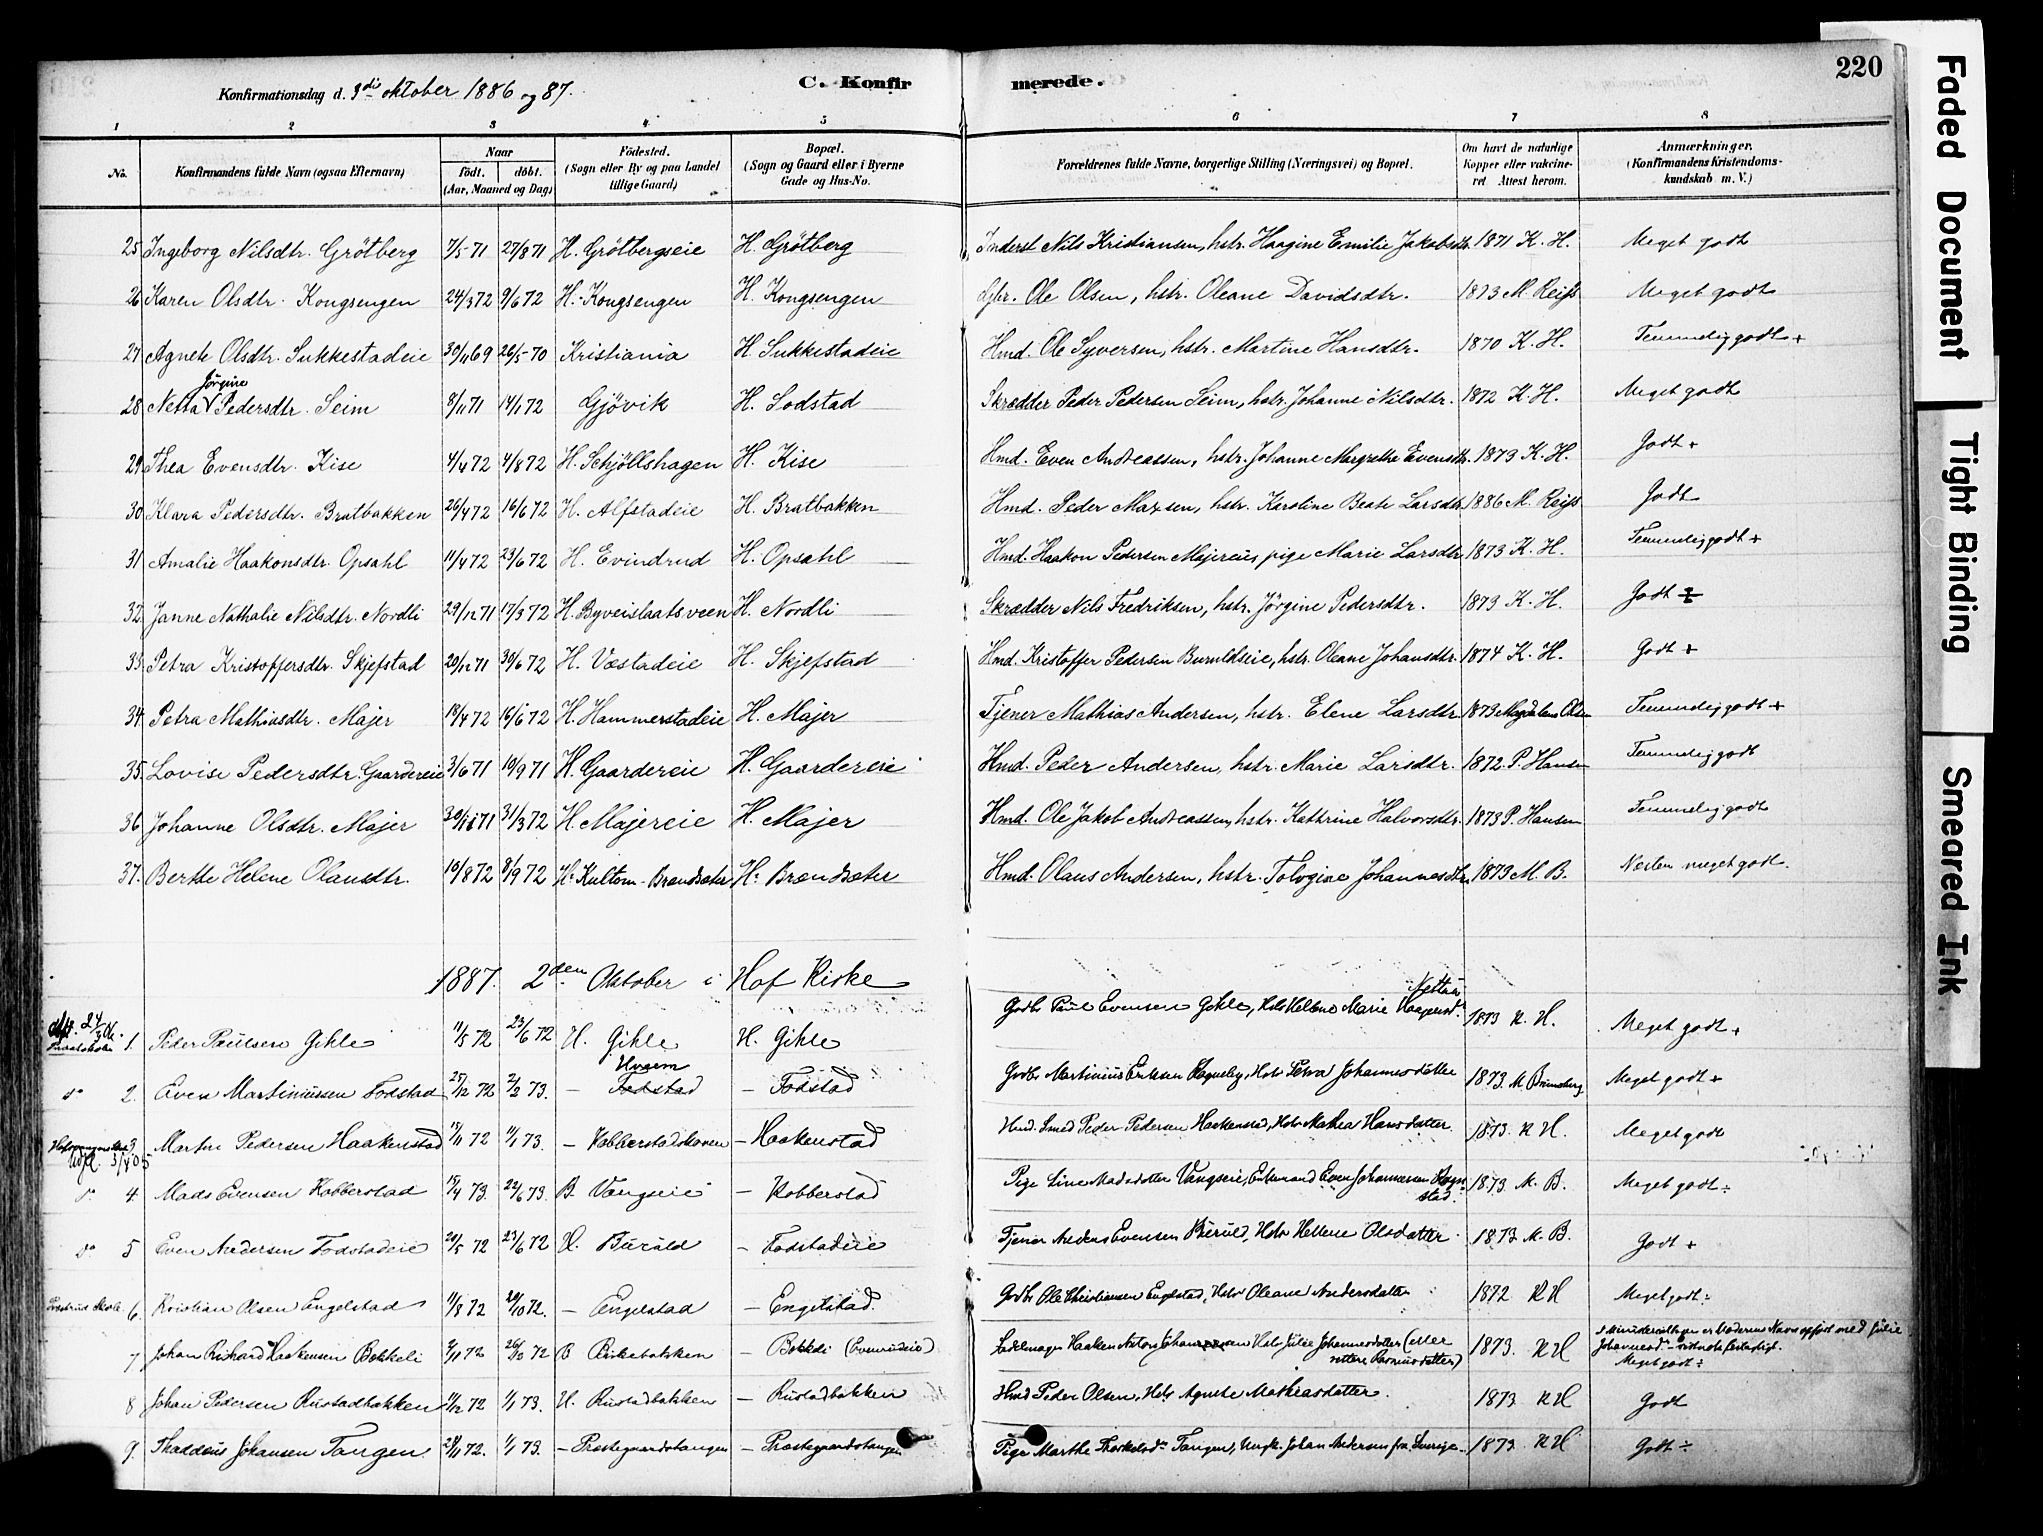 220
Konfirmationsdag d. 3die oktober 1886 og 87.
C. Konfirmerede.
1 2 3 4 5 6 7 8
No. Konfirmandens fulde Navn (ogsaa Efternavn) Naar födt. döbt. (Aar, Maaned og Dag) Födested. (Sogn eller By og paa Landet tillige Gaard) Bopæl. (Sogn og Gaard eller i Byerne Gade og Hus-No. Forældrenes fulde Navne, borgerlige Stilling (Næringsvei) og Bopæl. Om havt de naturlige Kopper eller vakcineret Attest herom. Anmærkninger. (Konfirmandens Kristendomskundskab m. V.)
25 Ingeborg Nilsdtr. Grötberg 7/5 71 27/8 71 H. Grötbergseie H. Grötberg Inderst Nils Kristiansen, hstr. Haagine Emilie Jakobsdtr. 1871 K. H. Meget godt
26 Karen Olsdtr. Kongsengen 24/3 72 9/6 72 H. Kongsengen H. Kongsengen Gbr. Ole Olsen, hstr. Oleane Davidsdtr. 1873 M Reiss Meget godt
27 Agnete Olsdtr. Sukkestadeie 30/11 69 26/5 70 Kristiania H. Sukkestadeie Hmd. Ole Syversen, hstr. Martine Hansdtr. 1870 K. H. Temmelig godt +
28 Netta Jörgine Pedersdtr. Seim 8/11 71 14/1 72 Gjövik H. Sodstad Skrædder Peder Pedersen Seim, hstr. Johanne Nilsdtr. 1872 K. H. Meget godt
29 Thea Evensdtr. Kise 4/4 72 4/8 72 H. Schjöllshagen H. Kise Hmd. Even Andreassen, hstr. Johanne Margrethe Evensdtr. 1873 K. H. Godt +
30 Klara Pedersdtr. Bratbakken 26/4 72 16/6 72 H. Alfstadeie H. Bratbakken Hmd. Peder Maxsen, hstr. Karoline Beate Larsdtr. 1886 M. Reiss Godt
31 Amalie Haakonsdtr. Opsahl 11/4 72 23/6 72 H. Evindrud H. Opsahl Hmd. Haakon Pedersen Majereie, pige Marie Larsdtr 1873 K. H. Temmelig godt +
32 Janne Nathalie Nilsdtr. Nordli 29/12 71 17/3 72 H. Byveislaatsveen H. Nordli Skrædder Nils Fredriksen, hstr. Jörgine Pedersdtr. 1873 K. H. Godt
33 Petra Kristoffersdtr. Skjefstad 20/12 71 30/6 72 H. Væstadeie H. Skjefstad Hmd. Kristoffer Pedersen Buruldseie, hstr. Oleane Johansdtr. 1874 K. H. Godt +
34 Petra Mathiasdtr. Majer 18/4 72 16/6 72 H. Hammerstadeie H. Majer Tjener Mathias Andersen, hstr. Elene Larsdtr. 1873 Magdalena Olsen Temmelig godt +
35. Lovise Pedersdtr. Gaardereie 3/6 71 10/9 71 H. Gaardereie H. Gaardereie Hmd. Peder Andersen, hstr. Marie Larsdtr. 1872 P. Hansen Temmelig godt
36. Johanne Olsdtr. Majer 30/11 71 31/3 72 H. Majereie H. Majer Hmd. Ole Jakob Andreassen, hstr. Kathrine Halvorsdtr. 1873 P. Hansen Temmelig godt
37. Berthe Helene Olausdtr. 10/8 72 8/9 72 H. Kultom-Brændsæter H. Brændsæter Hmd. Olaus Andersen, hstr. Tologine Johannesdtr. 1873 M. B. Næsten meget godt.
1887. 2den Oktober i Hof Kirke
1. Peder Paulsen Gihle 11/5 72 23/6 72 H. Gihle H. Gihle Gbr. Paul Evensen Gihle, Hstr Helene Marie 1873 K. H. Meget godt +
do 2. Even Martiniussen Fodstad 25/12 72 2/2 73. – Hveem Fodstad – Fodstad Gbr Martinius Eriksen Hstr Petra Johannesdatter 1873. M Brunsberg Meget godt +
3 Martin Pedersen Haakenstad 15/11 72 1/1 73. – Kobberstadskoven – Haakenstad Hmd. Smed Peder Pedersen Haakenstad, Hstr Mathea Hansdatter 1873. K H. Meget godt
Udfl. 3/4 05
do 4. Mads Evensen Kobberstad 15/4 73. 22/6 73. B. Vangseie – Kobberstad Pige Line Madsdatter Vangseie, Enkemand Even Johannesen 1873. M. B. Meget godt ÷
do 5 Even Andersen Fodstadeie 20/5 72 23/6 72 H. Buruld – Fodstadeie Tjener Anders Evensen Buruld, Hstr Hellene Olsdatter 1873 M. B. Godt +
6. Kristian Olsen Engelstad 11/8 72 20/10 72. – Engelstad – Engelstad. Gbr Ole Christiansen Engelstad, Hstr Oleane Andersdatter 1872 K H Meget godt ÷
7 Johan Richard Haakensen Bakkeli 2/9 72 26/12 72 B Birkebakken – Bakkeli (Evenrudeie) Sadelmager Haaken Anton Johannessen Hstr Julie Johannesdatter (eller rettere Rasmusdatter) 1873. K H Meget godt ÷
8 Johan Pedersen Rustadbakken 11/12 72 1/1 73. H. Rustadbakken – Rustadbakken Hmd Peder Olsen, Hstr Agnete Mathiasdatter. 1873 K H Godt
9. Thaddeus Johansen Tangen 28/11 72. 1/1 73. – Prestegaardstangen – Prestegaardstangen Pige Marthe Tangen, Ungk. Johan Andersen fra Sverige 1873 K H Godt ÷
Faded Document
Tight Binding
Smeared Ink